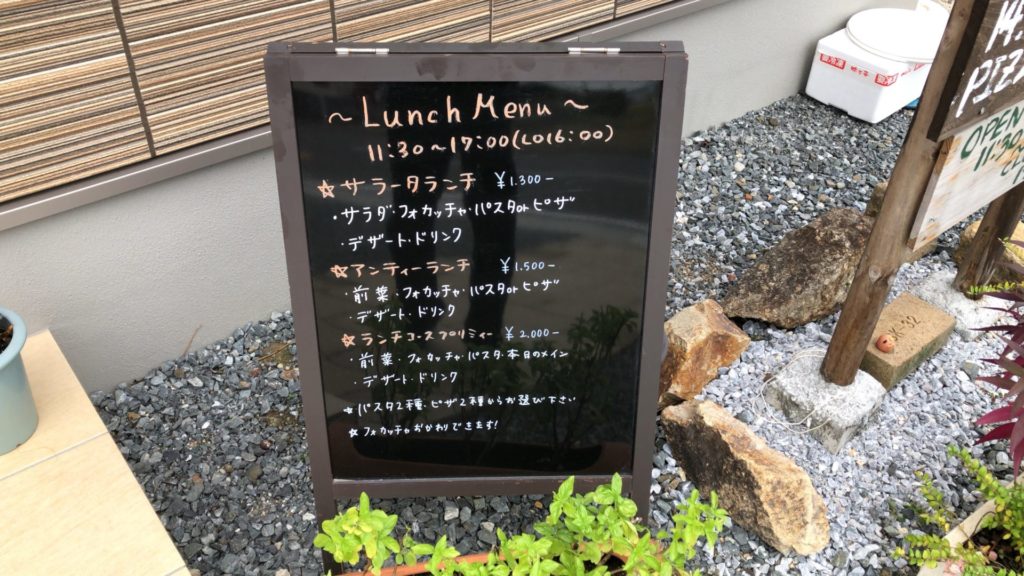 ~ Lunch Menu ~
11:30~17:00(LO16:00)
☆サラータランチ ¥1.300-
・サラダ・フォカッチャ・パスタorピザ
・デザート・ドリンク
☆アンティーランチ ¥1.500-
・前菜・フォカッチャ・パスタorピザ
・デザート・ドリンク
☆ランチコースプリミティー ¥2.000-
・前菜・フォカッチャ・パスタ・本日のメイン
・デザート・ドリンク
☆パスタ2種、ピザ2種からお選び下さい
☆フォカッチャおかわりできます!
OPEN
11:30